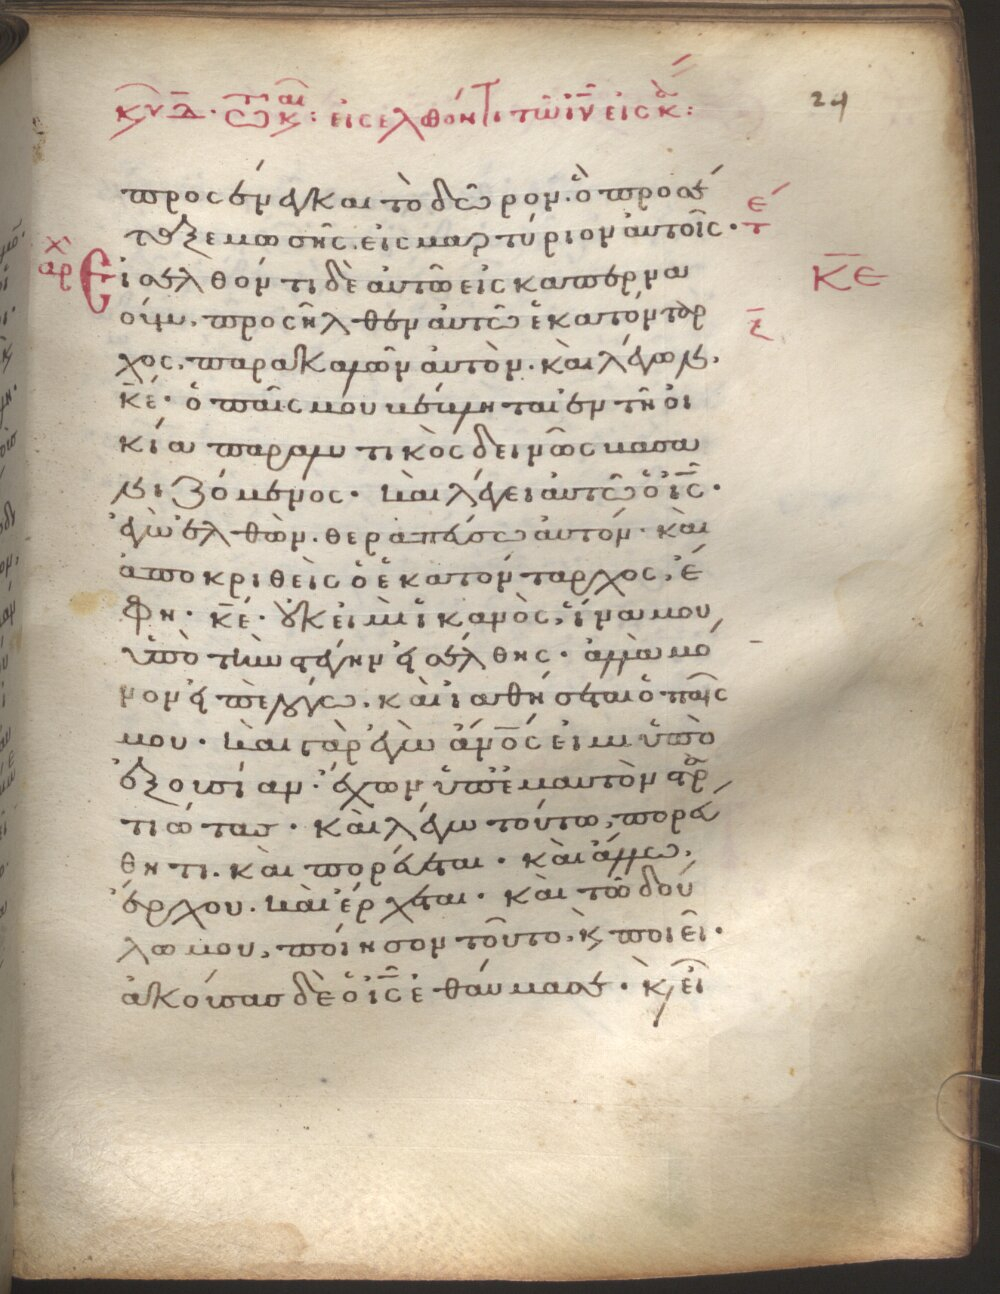 κυ δ. τω και κ: εἰσελθόντι τῶ ιυ εἰς κ:
24
προσένεγκαι τὸ δῶρον. ὃ προσέ
ταξε μωσῆς. εἰς μαρτύριον αὐτοῖς·
ε
τ
χ
αρ
Εἰσελθόντι δὲ αὐτῶ εἰς καπερνα
κε
ούμ, προσῆλθεν αὐτῶ ἑκατόνταρ
ζ
χος, παρακαλῶν αὐτὸν. καὶ λέγων,
κε· ὁ παῖς μου κέκληται ἐν τῆ οἰ
κία παραλυτικὸς δεινῶς βασα
νιζόμενος. καὶ λέγει αὐτῶ ὁ ις·
ἐγὼ ἐλθὼν. θεραπεύσω αὐτόν. καὶ
ἀποκριθεὶς ὁ ἑκατόνταρχος, ἔ
φη· κε· οὐκ εἰμὶ ἱκανὸς, ἵνα μου
ὑπὸ τὴν στέγην εἰσέλθης· ἀλλὰ μό
νον εἰπὲ λόγω. καὶ ἰαθήσεται ὁ παῖς
μου. καὶ γὰρ ἐγὼ ανος εἰμι ὑπὸ
ἐξουσίαν. ἔχων ὑπ' ἐμαυτὸν στρ
τιώτας. καὶ λέγω τούτω, πορεύ
θητι. καὶ πορεύεται. καὶ ἄλλω,
ἔρχου. καὶ ἔρχεται. καὶ τῶ δού
λω μου, ποίησον τοῦτο, κ ποιεῖ·
ἀκούσας δὲ ὁ ις ἐθαύμασε. κ εἶ